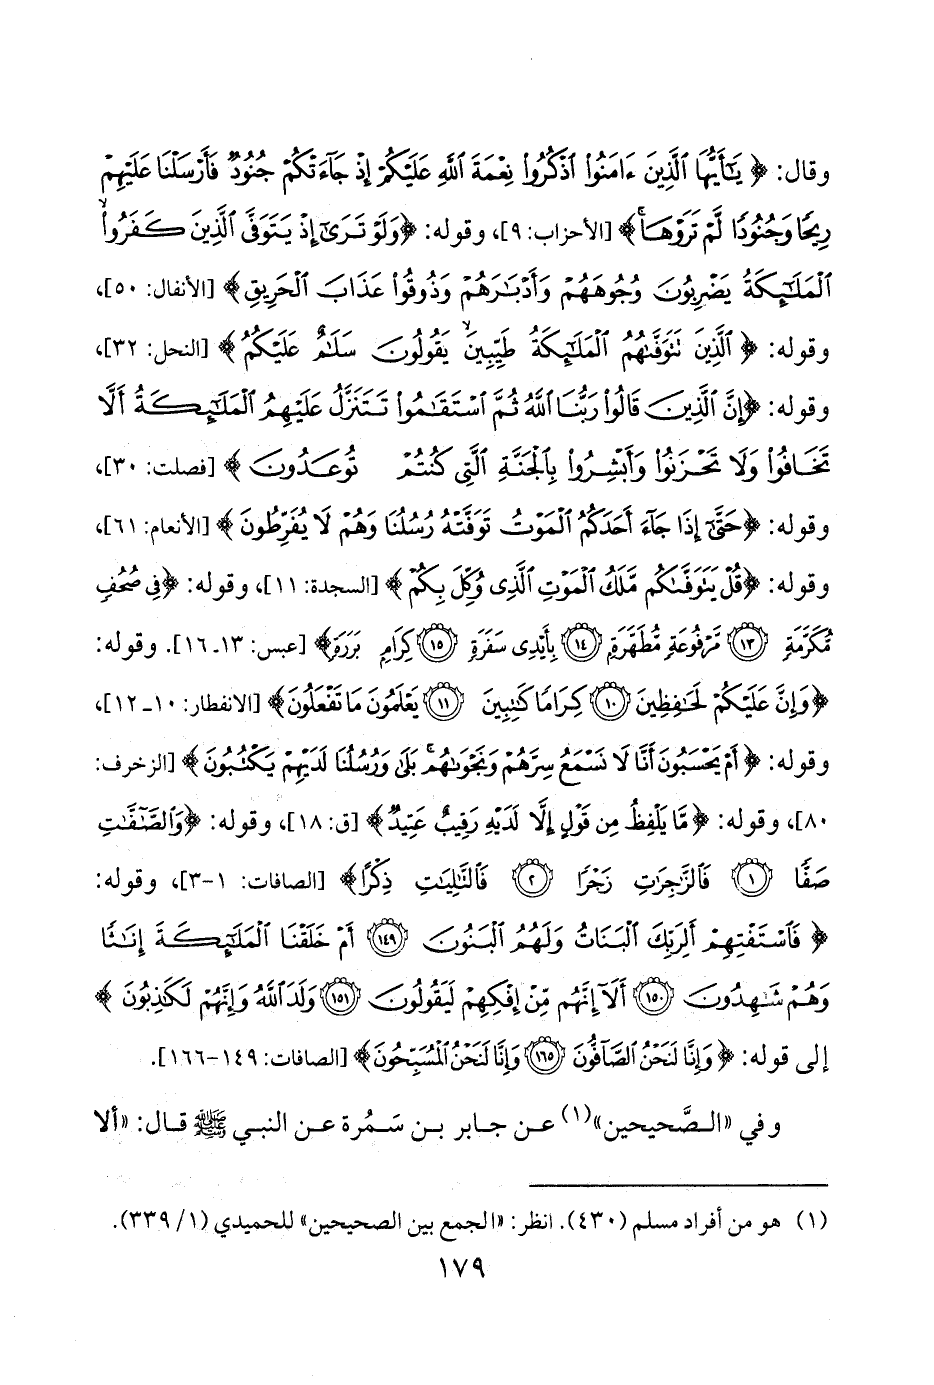 وقال: ﴿ يَٰٓأَيُّهَا ٱلَّذِينَ ءَامَنُوا۟ ٱذْكُرُوا۟ نِعْمَةَ ٱللَّهِ عَلَيْكُمْ إِذْ جَآءَتْكُمْ جُنُودٌ فَأَرْسَلْنَا عَلَيْهِمْ
رِيحًا وَجُنُودًا لَّمْ تَرَوْهَا ۚ﴾ [الأحزاب: ٩]، وقوله: ﴿وَلَوْ تَرَىٰٓ إِذْ يَتَوَفَّى ٱلَّذِينَ كَفَرُوا۟ ۙ
ٱلْمَلَٰٓئِكَةُ يَضْرِبُونَ وُجُوهَهُمْ وَأَدْبَٰرَهُمْ وَذُوقُوا۟ عَذَابَ ٱلْحَرِيقِ ﴾ [الأنفال: ٥٠]،
وقوله: ﴿ ٱلَّذِينَ تَتَوَفَّىٰهُمُ ٱلْمَلَٰٓئِكَةُ طَيِّبِينَ ۙ يَقُولُونَ سَلَٰمٌ عَلَيْكُمُ ﴾ [النحل: ٣٢]،
وقوله: ﴿إِنَّ ٱلَّذِينَ قَالُوا۟ رَبُّنَا ٱللَّهُ ثُمَّ ٱسْتَقَٰمُوا۟ تَتَنَزَّلُ عَلَيْهِمُ ٱلْمَلَٰٓئِكَةُ أَلَّا
تَخَافُوا۟ وَلَا تَحْزَنُوا۟ وَأَبْشِرُوا۟ بِٱلْجَنَّةِ ٱلَّتِى كُنتُمْ تُوعَدُونَ ﴾ [فصلت: ٣٠]،
وقوله: ﴿حَتَّىٰٓ إِذَا جَآءَ أَحَدَكُمُ ٱلْمَوْتُ تَوَفَّتْهُ رُسُلُنَا وَهُمْ لَا يُفَرِّطُونَ ﴾ [الأنعام: ٦١]،
وقوله: ﴿قُلْ يَتَوَفَّىٰكُم مَّلَكُ ٱلْمَوْتِ ٱلَّذِى وُكِّلَ بِكُمْ ﴾ [السجدة: ١١]، وقوله: ﴿فِى صُحُفٍ
مُّكَرَّمَةٍ ١٣ مَّرْفُوعَةٍ مُّطَهَّرَةٍۭ ١٤ بِأَيْدِى سَفَرَةٍ ١٥ كِرَامٍۭ بَرَرَةٍ﴾ [عبس: ١٣ـ١٦]. وقوله:
﴿وَإِنَّ عَلَيْكُمْ لَحَٰفِظِينَ ١٠ كِرَامًا كَٰتِبِينَ ١١ يَعْلَمُونَ مَا تَفْعَلُونَ﴾ [الانفطار: ١٠ـ١٢]،
وقوله: ﴿ أَمْ يَحْسَبُونَ أَنَّا لَا نَسْمَعُ سِرَّهُمْ وَنَجْوَىٰهُم ۚ بَلَىٰ وَرُسُلُنَا لَدَيْهِمْ يَكْتُبُونَ ﴾ [الزخرف:
٨٠]، وقوله: ﴿ مَّا يَلْفِظُ مِن قَوْلٍ إِلَّا لَدَيْهِ رَقِيبٌ عَتِيدٌ﴾ [ق: ١٨]، وقوله: ﴿وَٱلصَّٰٓفَّٰتِ
صَفًّا ١ فَٱلزَّٰجِرَٰتِ زَجْرًا ٢ فَٱلتَّٰلِيَٰتِ ذِكْرًا﴾ [الصافات: ١-٣]، وقوله:
﴿ فَٱسْتَفْتِهِمْ أَلِرَبِّكَ ٱلْبَنَاتُ وَلَهُمُ ٱلْبَنُونَ ١٤٩ أَمْ خَلَقْنَا ٱلْمَلَٰٓئِكَةَ إِنَٰثًا
وَهُمْ شَٰهِدُونَ ١٥٠ أَلَآ إِنَّهُم مِّنْ إِفْكِهِمْ لَيَقُولُونَ ١٥١ وَلَدَ ٱللَّهُ وَإِنَّهُمْ لَكَٰذِبُونَ ﴾
إلى قوله: ﴿ وَإِنَّا لَنَحْنُ ٱلصَّآفُّونَ ١٦٥ وَإِنَّا لَنَحْنُ ٱلْمُسَبِّحُونَ﴾ [الصافات: ١٤٩-١٦٦].
وفي «الصَّحيحين»(١) عن جابر بن سَمُرة عن النبي ﷺ قال: «ألا
(١) هو من أفراد مسلم (٤٣٠). انظر: «الجمع بين الصحيحين» للحميدي (١/ ٣٣٩).
١٧٩